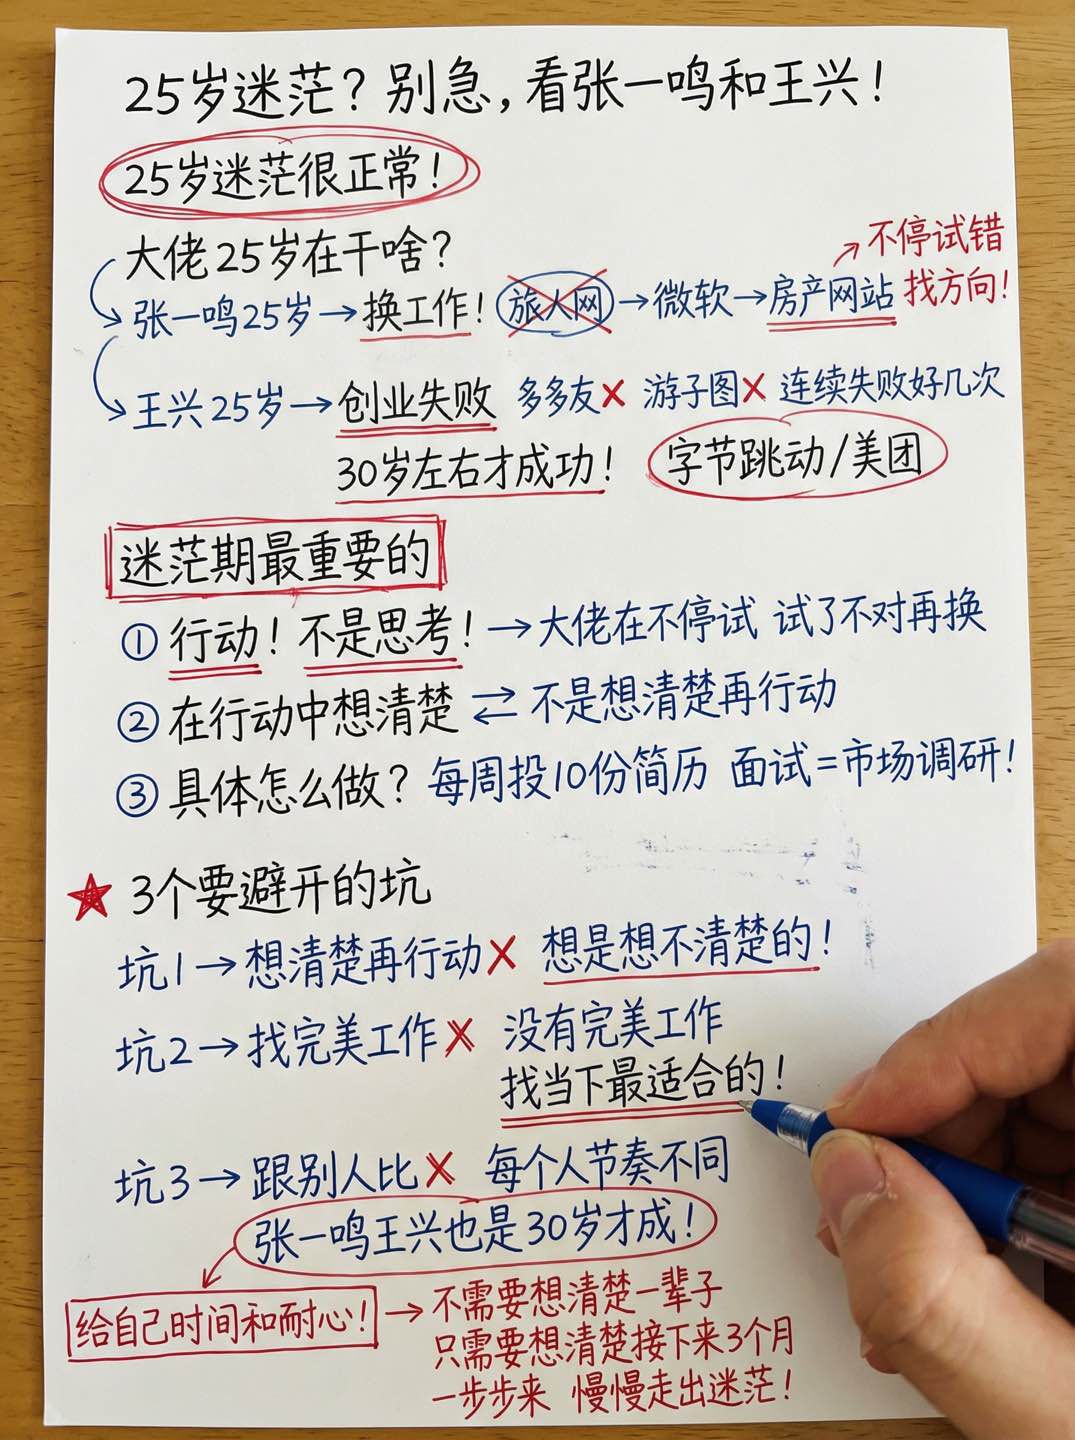 25岁迷茫？别急，看张一鸣和王兴！
25岁迷茫很正常！
大佬25岁在干啥？
不停试错
找方向！
张一鸣25岁→换工作！旅人网→微软→房产网站
王兴25岁→创业失败 多多友× 游子图× 连续失败好几次
30岁左右才成功！ 字节跳动/美团
迷茫期最重要的
① 行动！不是思考！→大佬在不停试 试了不对再换
② 在行动中想清楚 ⇄ 不是想清楚再行动
③ 具体怎么做？每周投10份简历 面试=市场调研！
★ 3个要避开的坑
坑1→想清楚再行动× 想是想不清楚的！
坑2→找完美工作× 没有完美工作
找当下最适合的！
坑3→跟别人比× 每个人节奏不同
张一鸣王兴也是30岁才成！
给自己时间和耐心！→不需要想清楚一辈子
只需要想清楚接下来3个月
一步步来 慢慢走出迷茫！